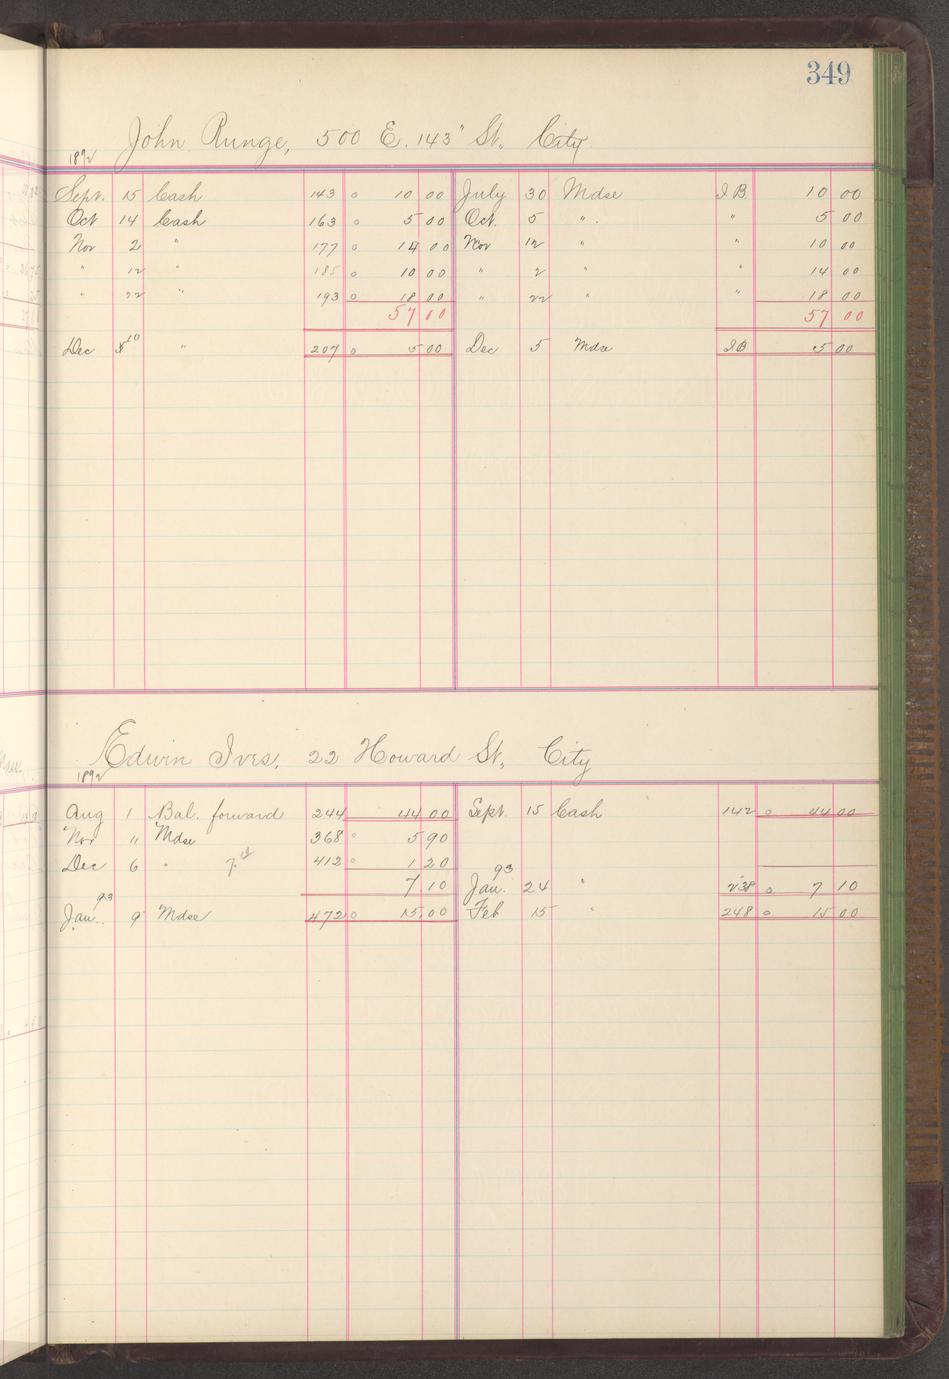 349
John Runge, 500 E. 143" St, City
1892
Sept. 15 Cash 143 o 10 00 July 30 Mdse I.B. 10 00
Oct 14 Cash 163 o 5 00 Oct. 5 " " 5 00
Nov 2 " 177 o 14 00 Nov 12 " " 10 00
" 12 " 185 o 10 00 " 2 " " 14 00
" 22 " 193 o 18 00 " 22 " " 18 00
57 00 57 00
Dec 10 " 207 o 5 00 Dec 5 Mdse I B 5 00
Edwin Ives, 22 Howard St, City
1892
Aug 1 Bal. forward 244 44 00 Sept. 15 Cash 142 o 44 00
Nov 11 Mdse 368 o 5 90
Dec 6 " 412 o 1 20
7 10 93 Jan. 24 " 238 o 7 10
93
Jan. 9 Mdse 472 o 15 00 Feb 15 " 248 o 15 00